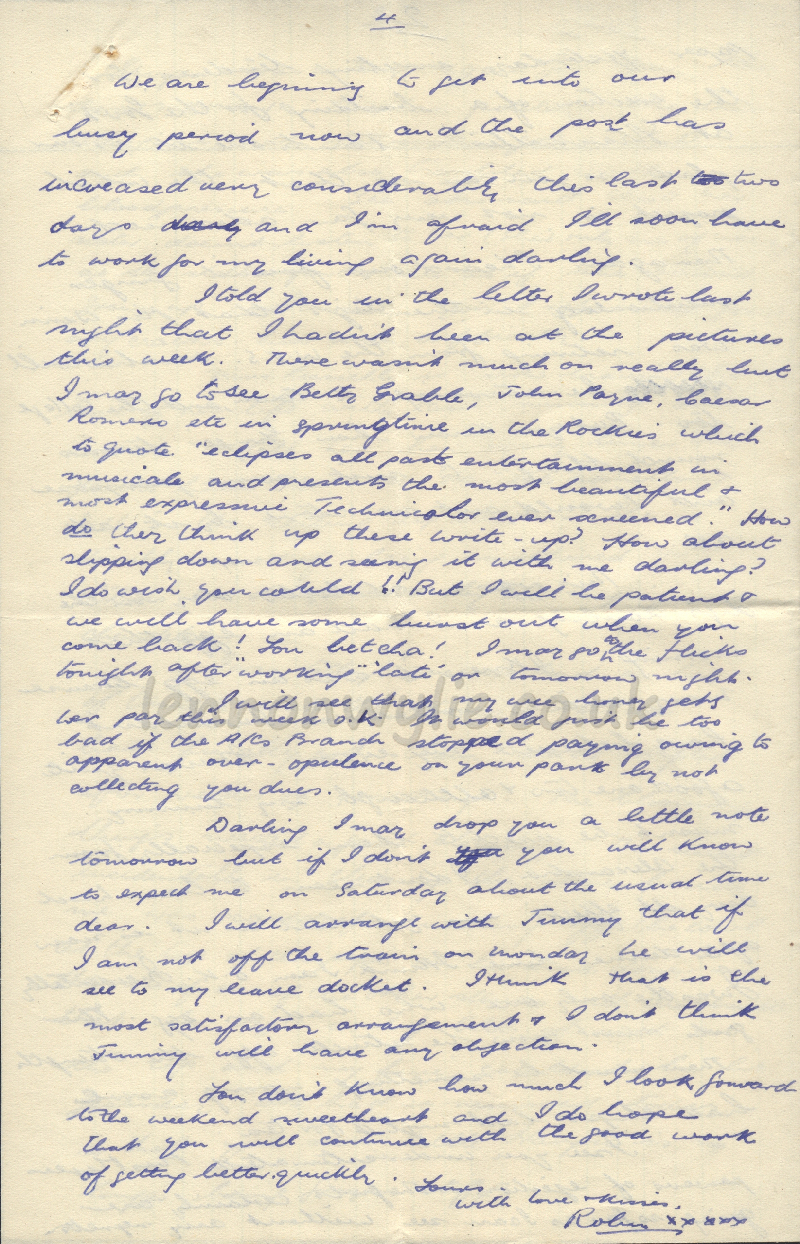 4
We are beginning to get into our
busy period now and the post has
increased very considerably this last too two
days and I'm afraid I'll soon have
to work for my living again darling.
I told you in the letter I wrote last
night that I hadn't been at the pictures
this week. There wasn't much on really but
I may go to see Betty Grable, John Payne, Caesar
Romero etc in Springtime in the Rockies which
to quote "eclipses all past entertainment in
musicale and presents the most beautiful &
most expressive Technicolor ever screened." How
do they think up these write-up? How about
slipping down and seeing it with me darling?
I do wish you could!! But I will be patient &
we will have some burst out when you
come back! You betcha! I may go to the flicks
tonight after "working" late or tomorrow night.
lennonwylie.co.uk
I will see that my wee love gets
her pay this week O.K. It would just be too
bad if the A/Cs Branch stopped paying owing to
apparent over-opulence on your part by not
collecting you dues.
Darling I may drop you a little note
tomorrow but if I don't you will know
to expect me on Saturday about the usual time
dear. I will arrange with Jimmy that if
I am not off the train on Monday he will
see to my leave docket. I think that is the
most satisfactory arrangement & I don't think
Jimmy will have any objection.
You don't know how much I look forward
to the weekend sweetheart and I do hope
that you will continue with the good work
of getting better quickly. Yours
with love & kisses,
Robin xx xxx